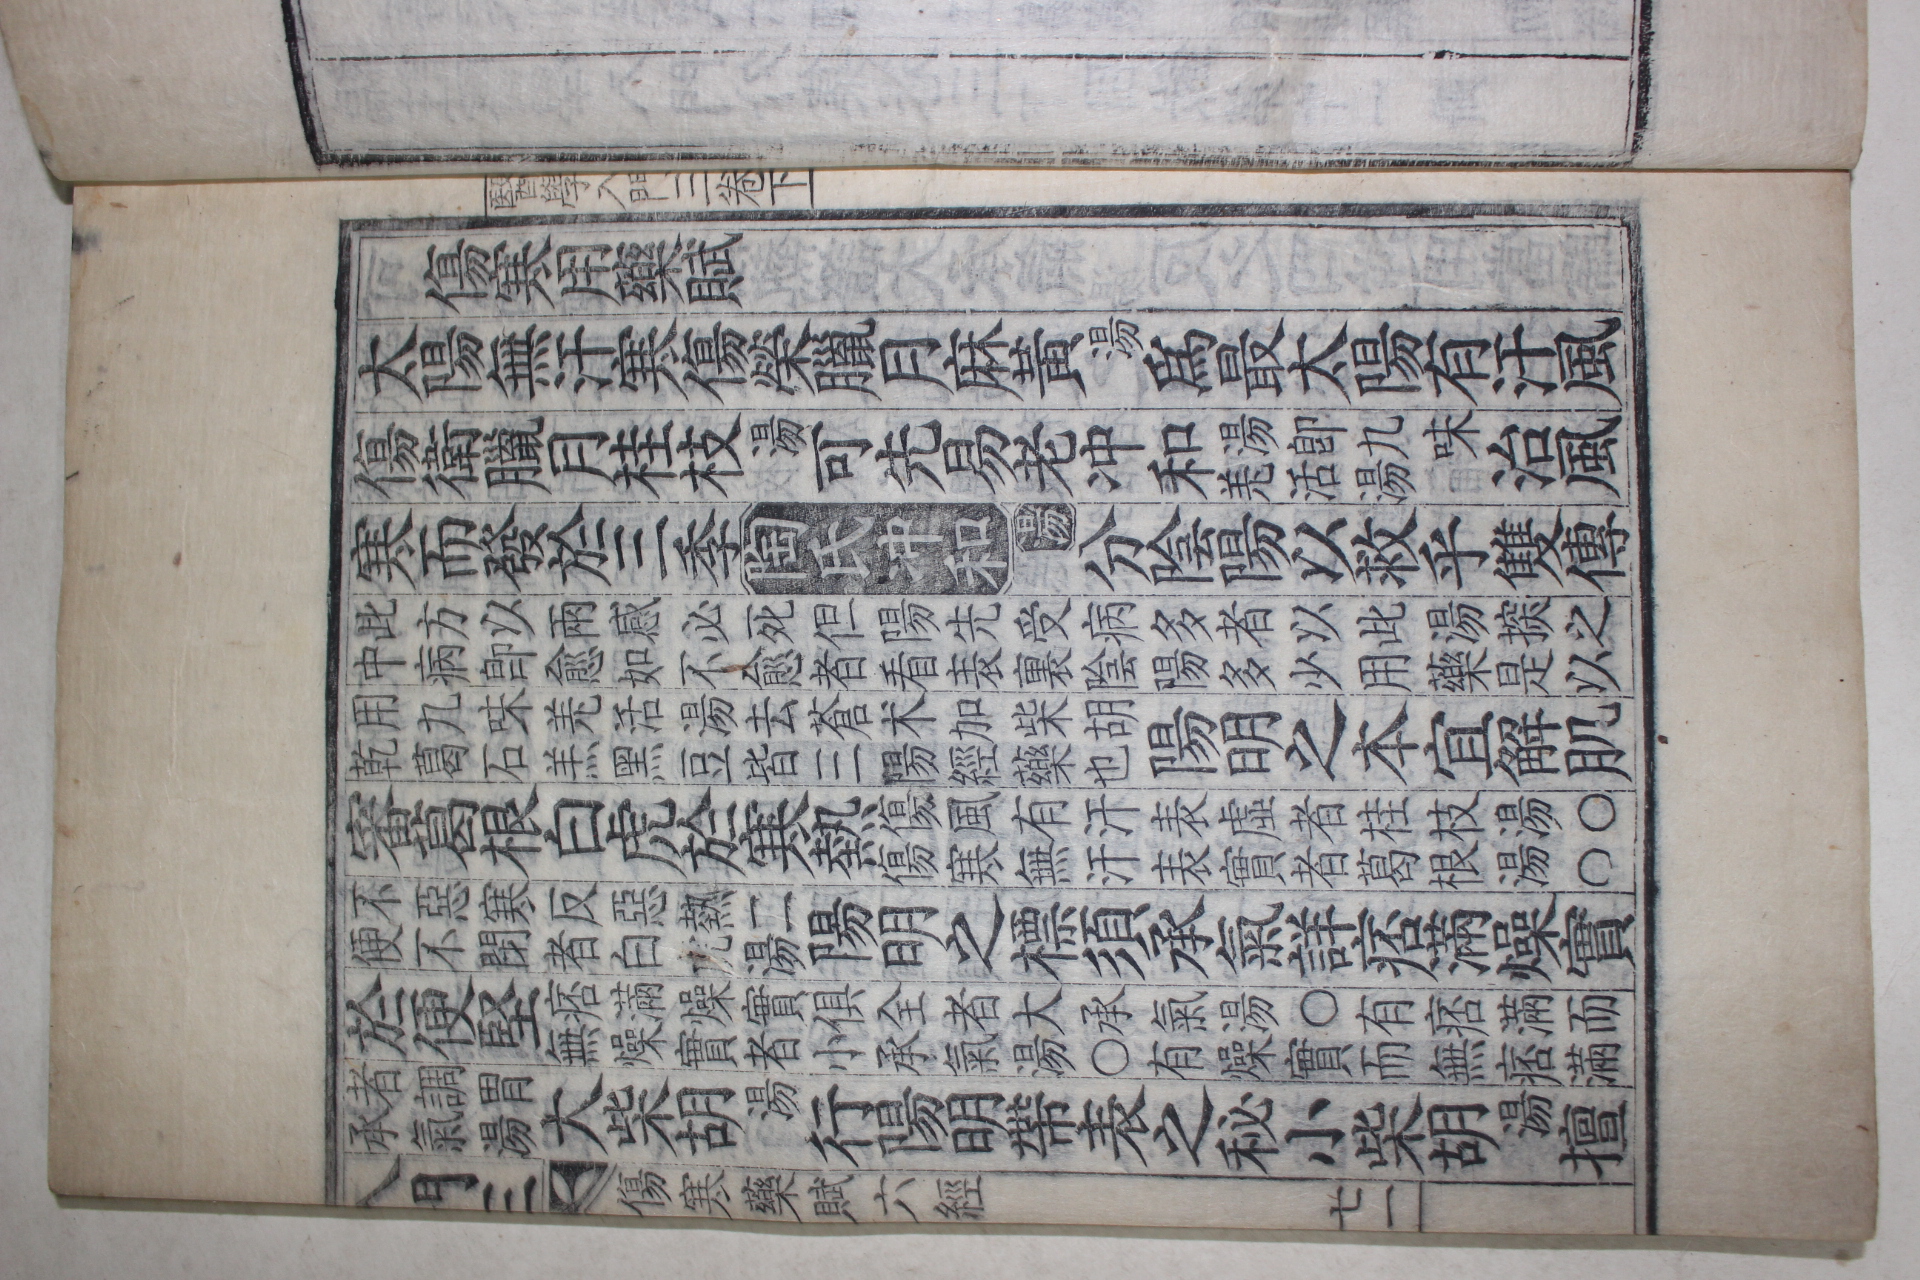 醫學入門三卷下
傷寒用藥賦
太陽無汗寒傷榮臘月麻黃湯爲最太陽有汗風
傷衛臘月桂枝湯可先易老冲和湯卽九味羌活湯治風
寒而發於三季陶氏冲和湯分陰陽以救乎雙傳
此方以兩感必死但陽先受病多者以此湯探之
中病卽愈如不愈者看表裏陰陽多少用藥是以
用九味羌活湯去蒼朮加柴胡
乾葛石羔黑豆皆三陽經藥也陽明之本宜解肌
審葛根白虎於寒熱傷風有汗表虛者桂枝湯〇
傷寒無汗表實者葛根湯〇
不惡寒反惡熱二
便不閉者白虎湯陽明之標須承氣詳痞滿燥實
於便堅痞滿燥實俱全者大承氣湯〇有痞滿而
無燥實者小承氣湯〇有燥實而無痞滿
者調胃
承氣湯大柴胡湯行陽明帶表之秘小柴胡湯擅
入門三 傷寒藥賦六經 七一